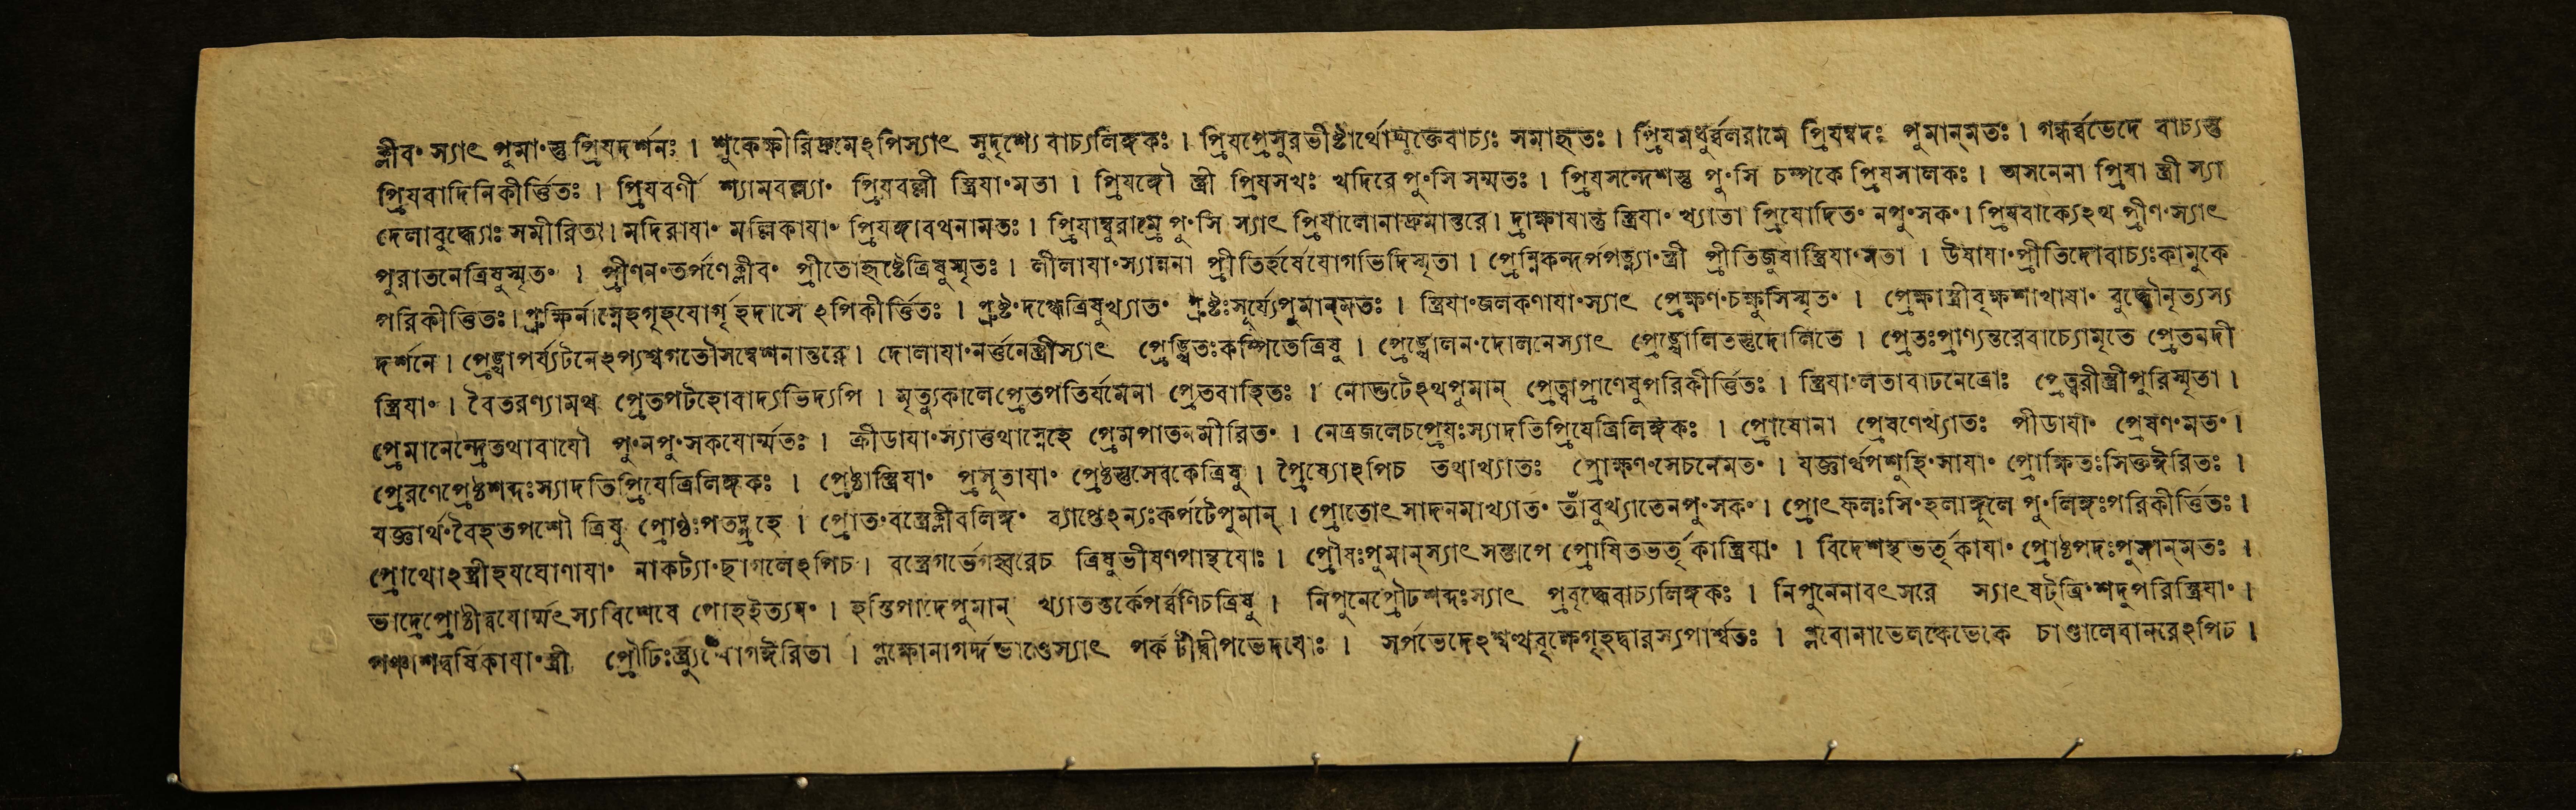 ক্লীবং স্যাৎ পুমাংস্তু প্রিযদর্শনঃ । শুকেক্ষীরিদ্রুমেঽপিস্যাৎ সুদৃশ্যে বাচ্যলিঙ্গকঃ । প্রিযপ্রেসুরভীষ্টার্থোদ্যুক্তেবাচ্যঃ সমাহৃতঃ । প্রিযমধুর্ব্বলরামে প্রিযম্বদঃ পুমান্মতঃ । গন্ধর্ব্বভেদে বাচ্যস্তু
প্রিযবাদিনিকীর্ত্তিতঃ । প্রিযবর্ণী শ্যামবল্ল্যাং প্রিযবল্লী স্ত্রিযাংমতা । প্রিযঙ্গৌ স্ত্রী প্রিযসখঃ খদিরে পুংসি সম্মতঃ । প্রিযসন্দেশস্তু পুংসি চম্পকে প্রিযসালকঃ । অসনেনা প্রিযা স্ত্রী স্যা
দেলাবুদ্ধ্যোঃ সমীরিতা। মদিরাযাং মল্লিকাযাং প্রিযঙ্গাবথনামতঃ । প্রিযাম্বুরাম্রে পুংসি স্যাৎ প্রিযালোনাদ্রুমান্তরে। দ্রাক্ষাযান্তু স্ত্রিযাং খ্যাতা প্রিযোদিতং নপুংসকং। প্রিযবাক্যেঽথ প্রীণংস্যাৎ
পুরাতনেত্রিষুস্মৃতং । প্রীণনংতর্পণেক্লীবং প্রীতোহৃষ্টেত্রিষুস্মৃতঃ । লীলাযাংস্যান্ননা প্রীতির্হর্ষেযোগভিদিস্মৃতা । প্রেম্নিকন্দর্পপত্ন্যাংস্ত্রী প্রীতিজুষাস্ত্রিযাংমতা । উষাযাংপ্রীতিদোবাচ্যঃকামুকে
পরিকীর্ত্তিতঃ। স্নেহগৃহযোর্গৃহদাসে ঽপিকীর্ত্তিতঃ । প্রুষ্টংদগ্ধেত্রিষুখ্যাতং প্রুষ্টঃসূর্য্যেপুমান্মতঃ । স্ত্রিযাংজলকণাযাংস্যাৎ প্রেক্ষণংচক্ষুসিস্মৃতং । প্রেক্ষাস্ত্রীবৃক্ষশাখাযাং বুদ্ধৌনৃত্যস্য
দর্শনে । প্রেঙ্খাপর্য্যটনেঽপ্যশ্বগতৌসম্বেশনান্তরে । দোলাযাংনর্ত্তনেস্ত্রীস্যাৎ প্রেঙ্খিতঃকম্পিতেত্রিষু । প্রেঙ্খোলনংদোলনেস্যাৎ প্রেঙ্খোলিতস্তুদোলিতে । প্রেতঃপ্রাণ্যন্তরেবাচ্যোমৃতে প্রেতনদী
স্ত্রিযাং । বৈতরণ্যামথ প্রেতপটহোবাদ্যভিদ্যপি । মৃত্যুকালেপ্রেতপতির্যমেনা প্রেতবাহিতঃ । নোদ্ভটেঽথপুমান্ প্রেত্বাপ্রাণেষুপরিকীর্ত্তিতঃ । স্ত্রিযাংলতাবাঢনেত্রোঃ প্রেত্বরীস্ত্রীপুরিস্মৃতা ।
প্রেমানেন্দ্রেতথাবাযৌ পুংনপুংসকযোর্ম্মতঃ । ক্রীডাযাংস্যাত্তথাস্নেহে প্রেমপাতনমীরিতং । নেত্রজলেচপ্রেযঃস্যাদতিপ্রিযেত্রিলিঙ্গকঃ । প্রেষোনা প্রেষণেখ্যাতঃ পীডাযাং প্রেষণংমতং ।
প্রেরণেপ্রেষ্ঠশব্দঃস্যাদতিপ্রিযেত্রিলিঙ্গকঃ । প্রেষ্ঠাস্ত্রিযাং প্রসূতাযাং প্রেষ্ঠস্তুসেবকেত্রিষু । প্রৈষ্যোঽপিচ তথাখ্যাতঃ প্রোক্ষণংসেচনেমতং । যজ্ঞার্থপশুহিংসাযাং প্রোক্ষিতঃসিক্তঈরিতঃ ।
যজ্ঞার্থংবৈহতপশৌ ত্রিষু প্রোণ্ঠঃপতদ্গ্রহে । প্রোতংবস্ত্রেক্লীবলিঙ্গং ব্যাপ্তেঽন্যঃকর্পটেপুমান্ । প্রোতোৎসাদনমাখ্যাতং তাঁবুখ্যাতেনপুংসকং । প্রোৎফলঃসিংহলাঙ্গূলে পুংলিঙ্গঃপরিকীর্ত্তিতঃ ।
প্রোথোঽস্ত্রীহযঘোণাযাং নাকট্যাংছাগলেঽপিচ । বস্ত্রেগর্ভেগহ্বরেচ ত্রিষুভীষণপান্থযোঃ । প্রৌষঃপুমান্স্যাৎসন্তাপে প্রোষিতভর্তৃকাস্ত্রিযাং । বিদেশস্থভর্তৃকাযাং প্রোষ্ঠপদঃপুমান্মতঃ ।
ভাদ্রেপ্রোষ্ঠীদ্বযোর্ম্মৎস্যবিশেষে পোহইত্যযং । হস্তিপাদেপুমান্ খ্যাতস্তর্কেপর্ব্বণিচত্রিষু । নিপুনেপ্রৌঢশব্দঃস্যাৎ প্রবৃদ্ধেবাচ্যলিঙ্গকঃ । নিপুনেনাবৎসরে স্যাৎষট্ত্রিংশদুপরিস্ত্রিযাং ।
পঞ্চাশদ্বর্ষিকাযাংস্ত্রী প্রৌঢিঃ ঈরিতা । প্লক্ষোনাগর্দ্দভাণ্ডেস্যাৎ পর্কটীদ্বীপভেদযোঃ । সর্পভেদেঽশ্বত্থবৃক্ষেগৃহদ্বারস্যপার্শ্বতঃ । প্লবোনাভেলকেভেকে চাণ্ডালেবানরেঽপিচ ।